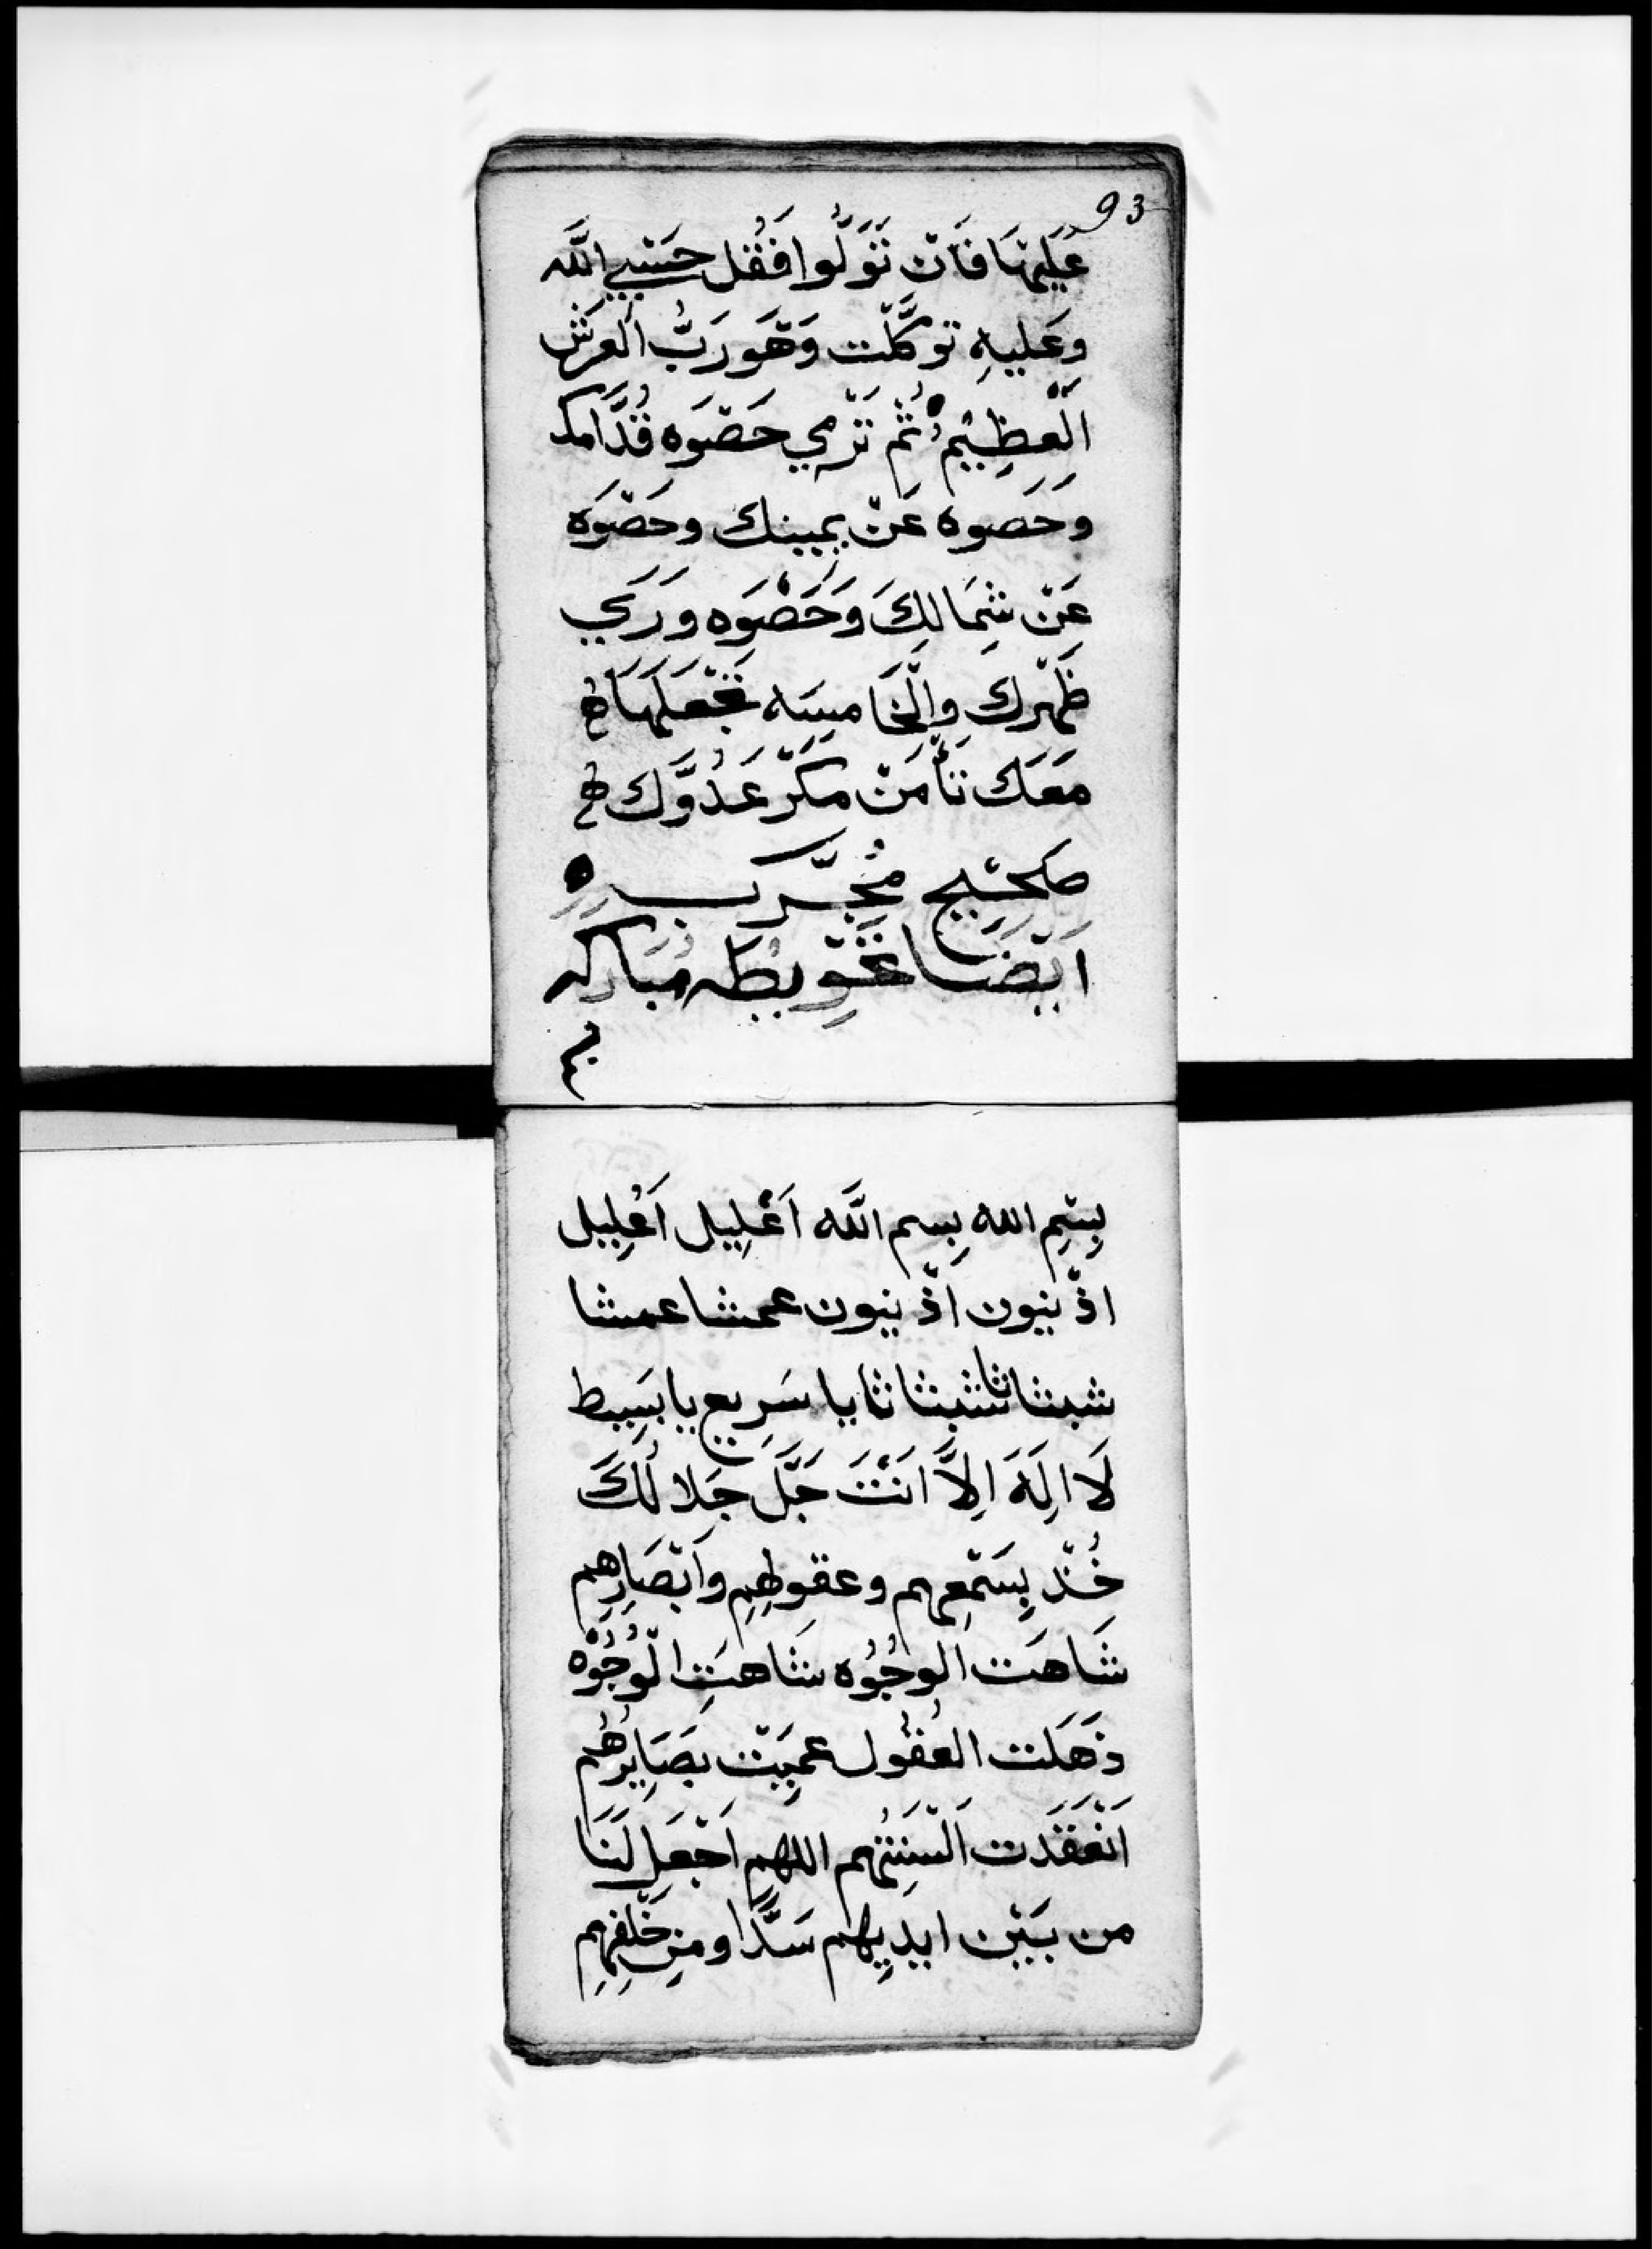 93
عَلَيهَا فَاِن تَوَلَّوا فَقُل حَسْبِي اللَّه
وعَليهِ توكَّلت وَهَو رَبُّ العَرَش
الْعظِيْم ثُم تَرْمي حَصْوَه قُدَّامك
وَحَصوه عَنْ يمينك وحَصْوَه
عَنْ شِمَالكَ وَحَصْوَه وَرَي
ظَهْرك والْخَامسَه تَجْعَلَهَا
مَعَك تَأْمَنْ مَكْرَ عَدُوَّك
صَحْيح مُجَّرب
اَيْضَا مُبَاركه
بسم
بِسْمِ الله بِسم اللَّه اَعْلِيل اَعْلِيل
اذْ نيون اذْ نيون عمشا عمشا
شبثا ثا شبثا ثا يا سَرِيع يا بَسِيط
لَا الِهَ اِلَّا انَتَ جَلَّ جَلَالكَ
خُذْ بِسَمْعِهم وعقولهِم وَابْصَارِهم
شَاهَت الوجُوُه شَاهتِ الْوُجُوْه
ذَهَلت العُقُول عميَتْ بصَايرهُم
اَنْعَقَدَت اَلْسِنَتُهم اللهم اَجْعَل لَنَا
من بَيْن ايديِهم سَدَّا ومنِ خَلْفِهِم